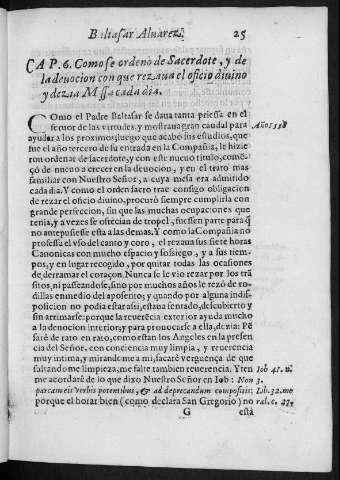 Baltasar Aluarez. 25
CAP. 6. Como se ordenò de Sacerdote, y de
la deuocion con que rezaua el oficio diuino
y dezia Missa cada dia.
Como el Padre Baltasar se daua tanta priessa en el
feruor de las virtudes, y mostraua gran caudal para Año 558
ayudar a los proximos, luego que acabó sus estudios, que
fue el año tercero de su entrada en la Compañia, le hizie
ron ordenar de sacerdote, y con este nueuo titulo, comē-
çò de nueuo a crecer en la deuocion, y en el trato mas
familiar con Nuestro Señor, a cuya mesa era admitido
cada dia. Y como el orden sacro trae consigo obligacion
de rezar el oficio diuino, procurò siempre cumplirla con
grande perfeccion, sin que las muchas ocupaciones que
tenia, y a vezes se ofrecian de tropel, fuessen parte para q̄
no antepusiesse esta a las demas. Y como la Compañia no
professa el vso del canto y coro, el rezaua sus siete horas
Canonicas con mucho espacio y sosiego, y a sus tiem-
pos, y en lugar recogido, por quitar todas las ocasiones
de derramar el coraçon. Nunca se le vio rezar por los trā
sitos, ni passeandose, sino por muchos años le rezó de ro-
dillas enmedio del aposento; y quando por alguna indis-
posicion no podia estar assi, estaua sentado, descubierto y
sin arrimarse: porque la reuerēcia exterior ayuda mucho
a la deuocion interior; y para prouocarse a ella, dezia: Pē
saré de rato en rato, como estan los Angeles en la presen
cia del Señor, con conciencia muy limpia, y reuerencia
muy intima, y mirandome a mi, sacaré verguença de que
faltandome limpieza, me falte tambien reuerencia. Y ten Iob 41. v.
me acordaré de lo que dixo Nuestro Señor en Iob: Non 3.
parcam ei & verbis potentibus, & ad deprecandum compositis; Lib. 32. mo
porque el horar bien (como declara San Gregorio) no ral. c. 27.
G está